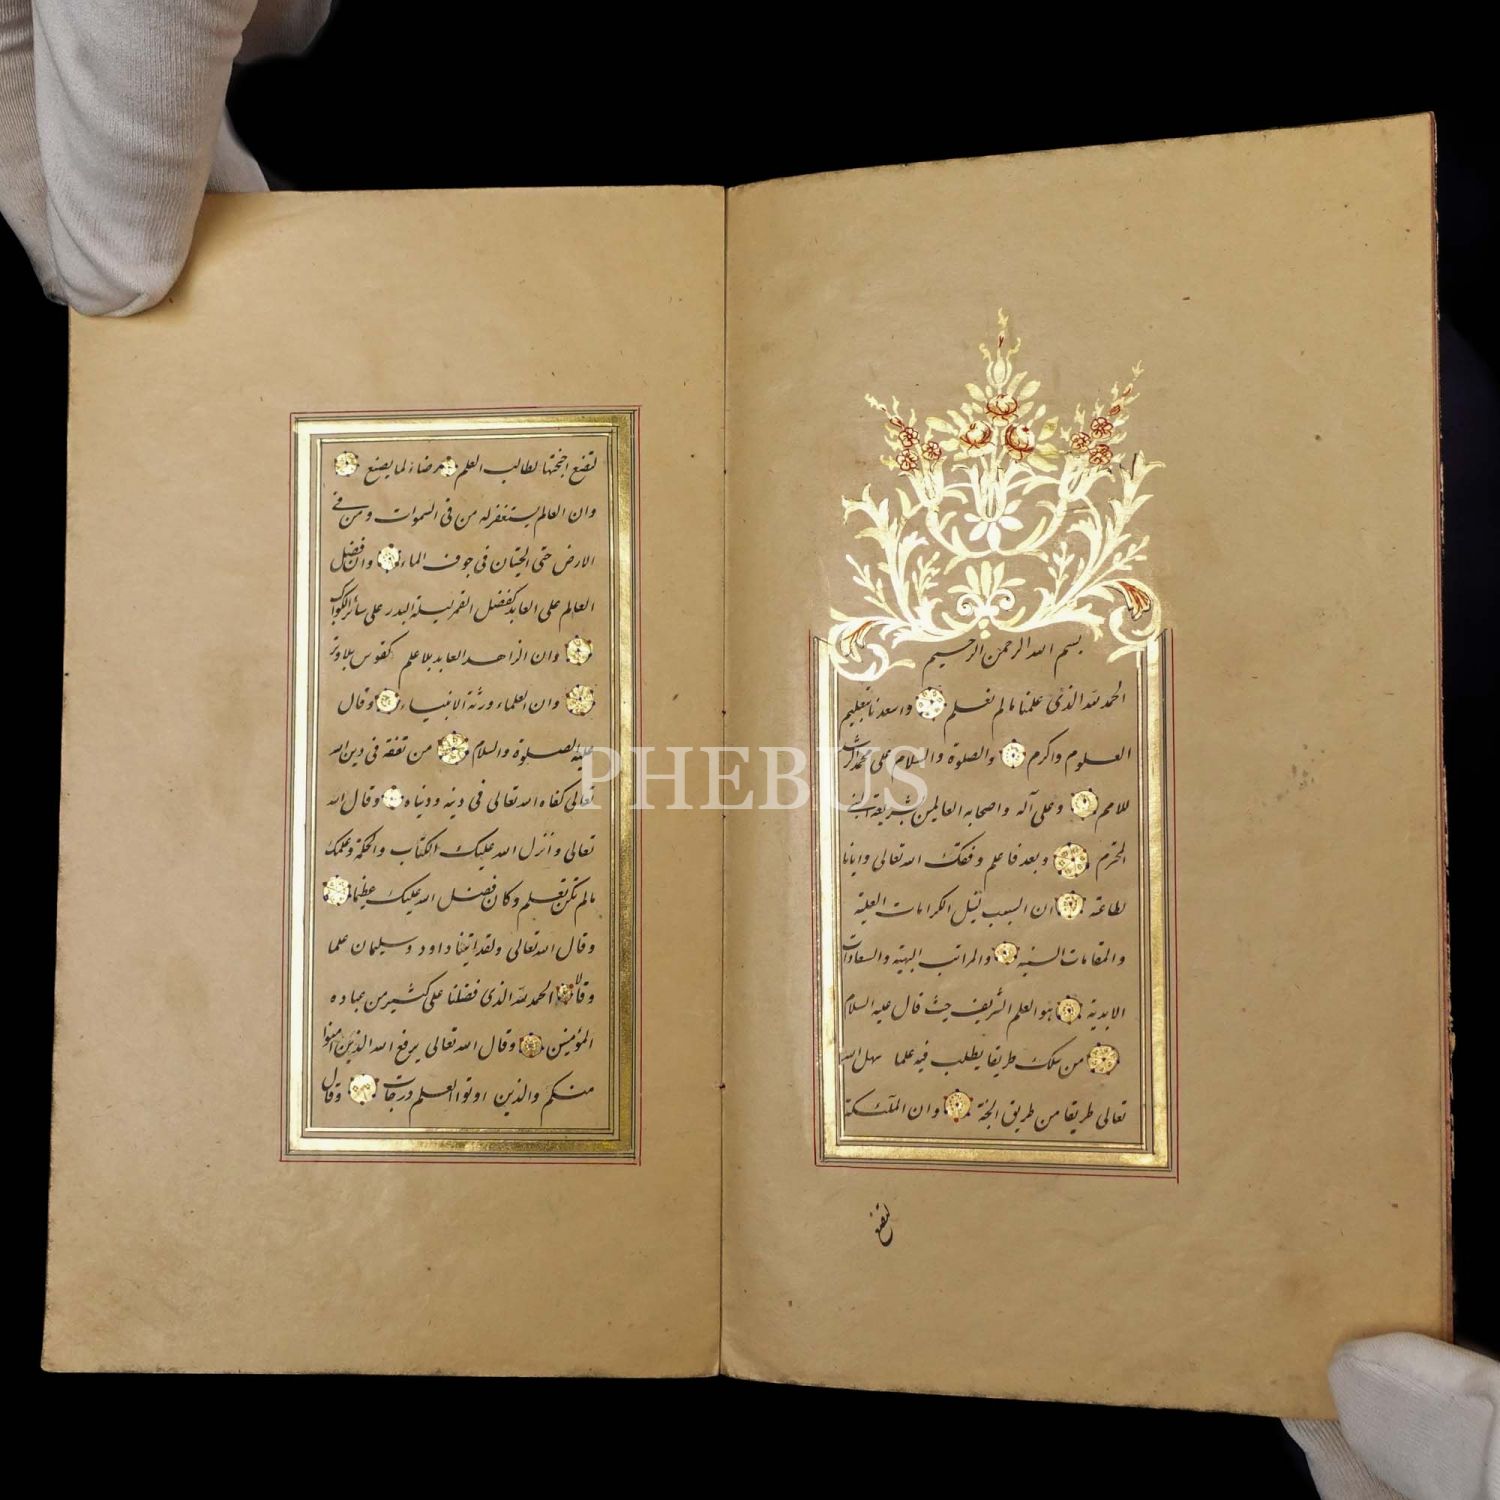 بسم الله الرحمن الرحيم
الحمد لله الذى علمنا مالم نعلم واسعدنا بتعليم
العلوم واكرم والصلوة والسلام على محمد
للامم وعلى آله واصحابه العالمين بشريعة النبى
المحترم وبعد فاعلم وفقك الله تعالى وايانا
لطاعته ان السبب لنيل الكرامات العلية
والمقامات السنيه والمراتب البهية والسعادات
الابدية هو العلم الشريف حيث قال عليه السلام
من سلك طريقا يطلب فيه علما سهل الله
تعالى طريقا من طريق الجنة وان الملئكة
لتضع
لتضع اجنحتها لطالب العلم رضاء لما يصنع
وان العالم يستغفر له من فى السموات ومن فى
الارض حتى الحيتان فى جوف الماء وان فضل
العالم على العابد كفضل القمر ليلة البدر على سائر الكواكب
وان الزاهد العابد بلا علم كقوس بلا وتر
وان العلماء ورثة الانبياء وقال
عليه الصلوة والسلام من تفقه فى دين الله
تعالى كفاه الله تعالى فى دينه ودنياه وقال الله
تعالى وانزل الله عليك الكتاب والحكمة وعلمك
مالم تكن تعلم وكان فضل الله عليك عظيما
وقال الله تعالى ولقد اتينا داود وسليمان علما
وقالا الحمد لله الذى فضلنا على كثير من عباده
المؤمنين وقال الله تعالى يرفع الله الذين آمنوا
منكم والذين اوتوا العلم درجات وقال
PHEBUS